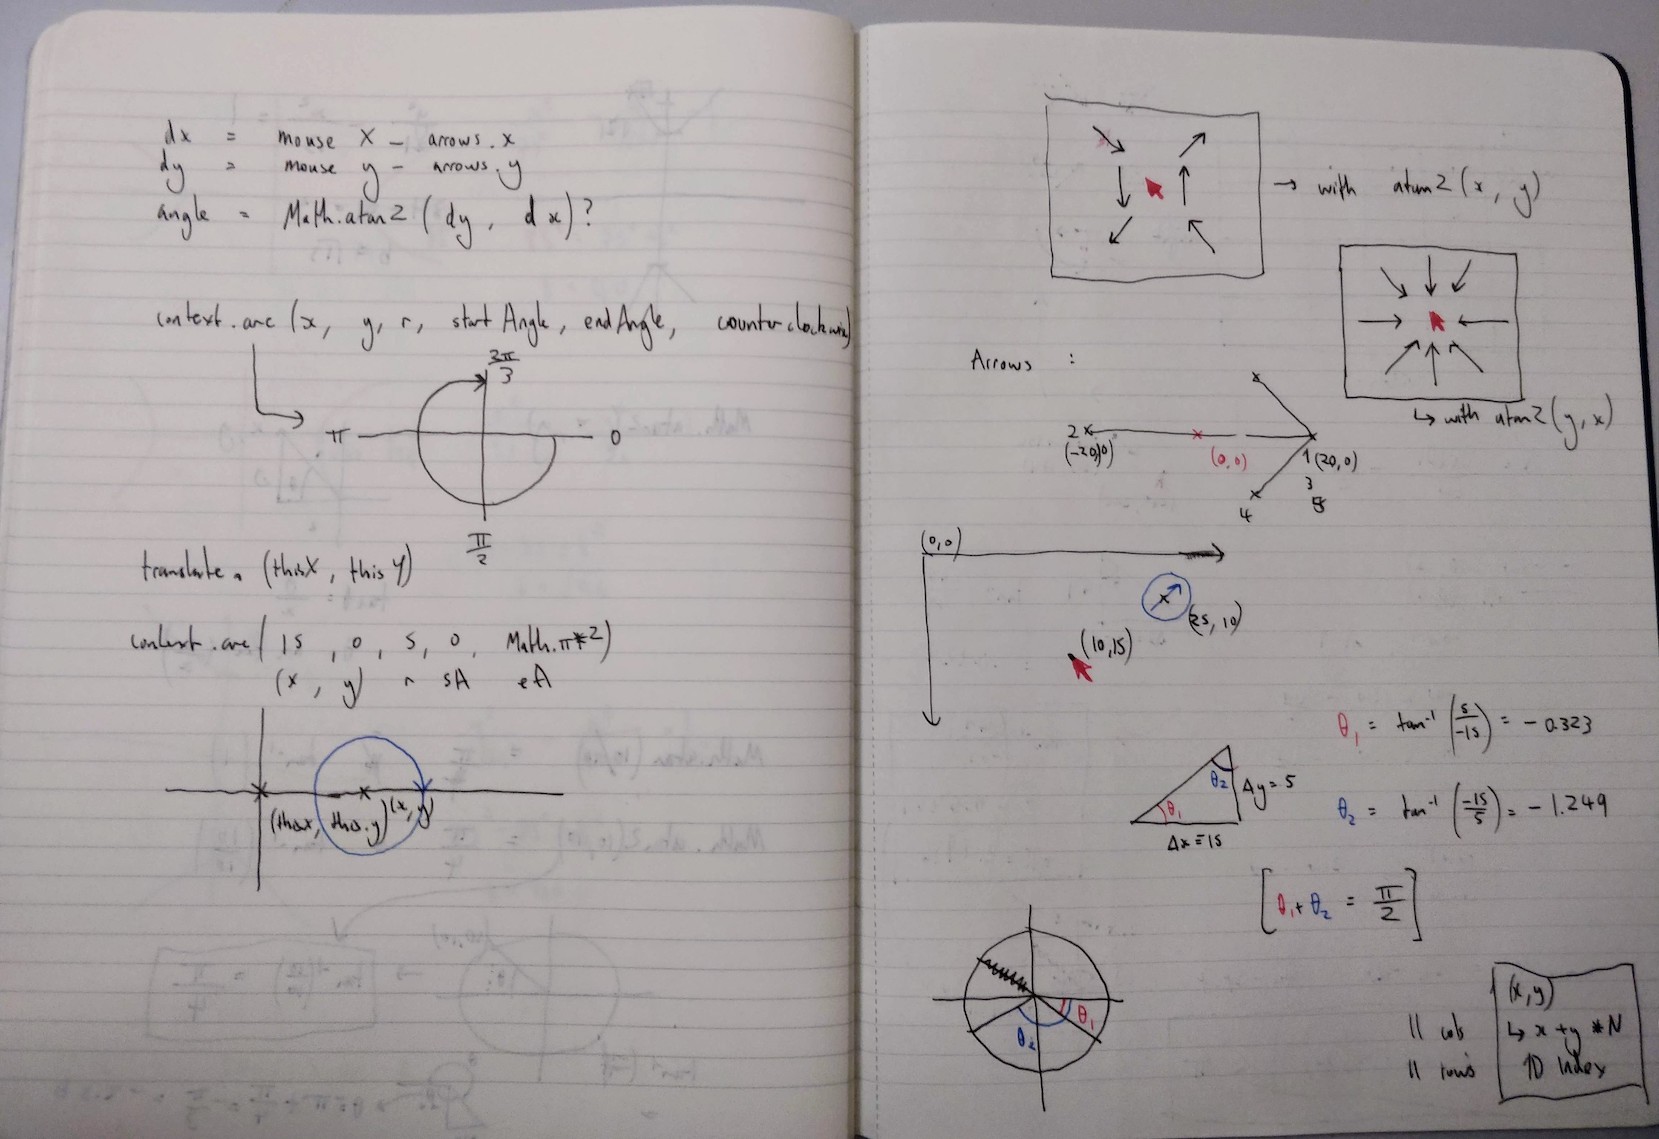 dx = mouse X - arrows.x
dy = mouse y - arrows.y
angle = Math.atan2 (dy, dx)?
context.arc (x, y, r, startAngle, endAngle, counterclockwise)
3π/3
π
0
π/2
translate. (thisX, thisY)
context.arc ( 15, 0, 5, 0, Math.π*2)
(x, y) r sA eA
(thisx, this.y) (x, y)
→ with atan2 (x, y)
↳ with atan2 (y, x)
Arrows :
2
(-20,0)
(0,0)
1 (20,0)
3
4
5
(0,0)
(25, 10)
(10,15)
θ₁ = tan⁻¹ (5/-15) = -0.323
θ₂ = tan⁻¹ (-15/5) = -1.249
θ₂
Δy = 5
θ₁
Δx = 15
[θ₁ + θ₂ = π/2]
θ₁
θ₂
11 cols
11 rows
(x,y)
↳ x + y * N
1D Index